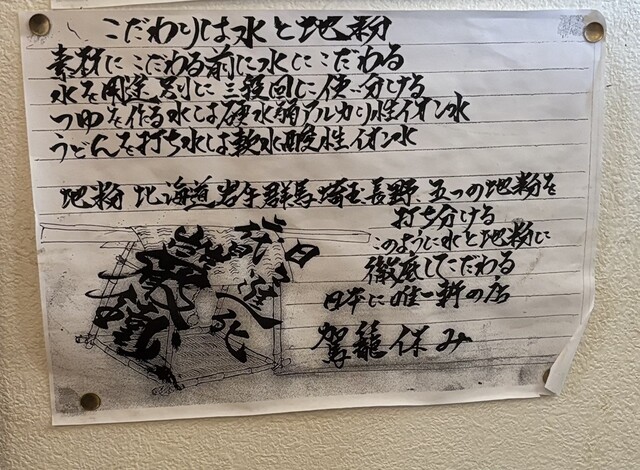 こだわりは水と地粉
素材にこだわる前に水にこだわる
水を用途別に三段回に使い分ける
つゆを作る水は硬水弱アルカリ性イオン水
うどんを打ち水は軟水酸性イオン水
地粉北海道、岩手、群馬、埼玉、長野、五つの地粉を
打ち分ける
このように水と地粉に
徹底してこだわる
日本に唯一軒の店
駕籠休み